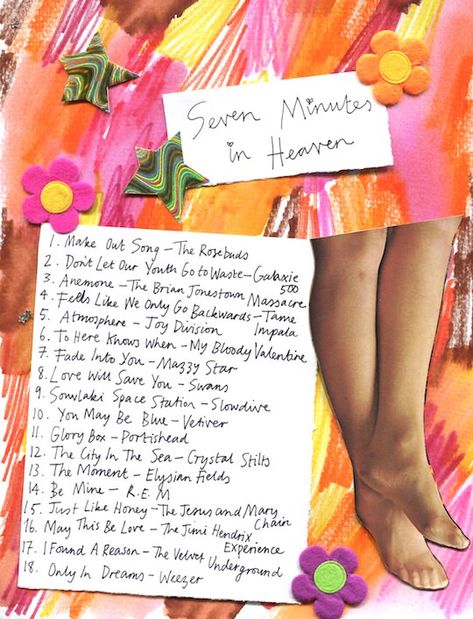 Seven Minutes
in Heaven
1. Make Out Song – The Rosebuds
2. Don't Let Our Youth Go to Waste – Galaxie
500
3. Anemone – The Brian Jonestown Massacre
4. Feels Like We Only Go Backwards – Tame
Impala
5. Atmosphere – Joy Division
6. To Here Knows When – My Bloody Valentine
7. Fade Into You – Mazzy Star
8. Love Will Save You – Swans
9. Souvlaki Space Station – Slowdive
10. You May Be Blue – Vetiver
11. Glory Box – Portishead
12. The City In The Sea – Crystal Stilts
13. The Moment – Elysian Fields
14. Be Mine – R.E.M
15. Just Like Honey – The Jesus and Mary
Chain
16. May This Be Love – The Jimi Hendrix
Experience
17. I Found A Reason – The Velvet
Underground
18. Only In Dreams – Weezer